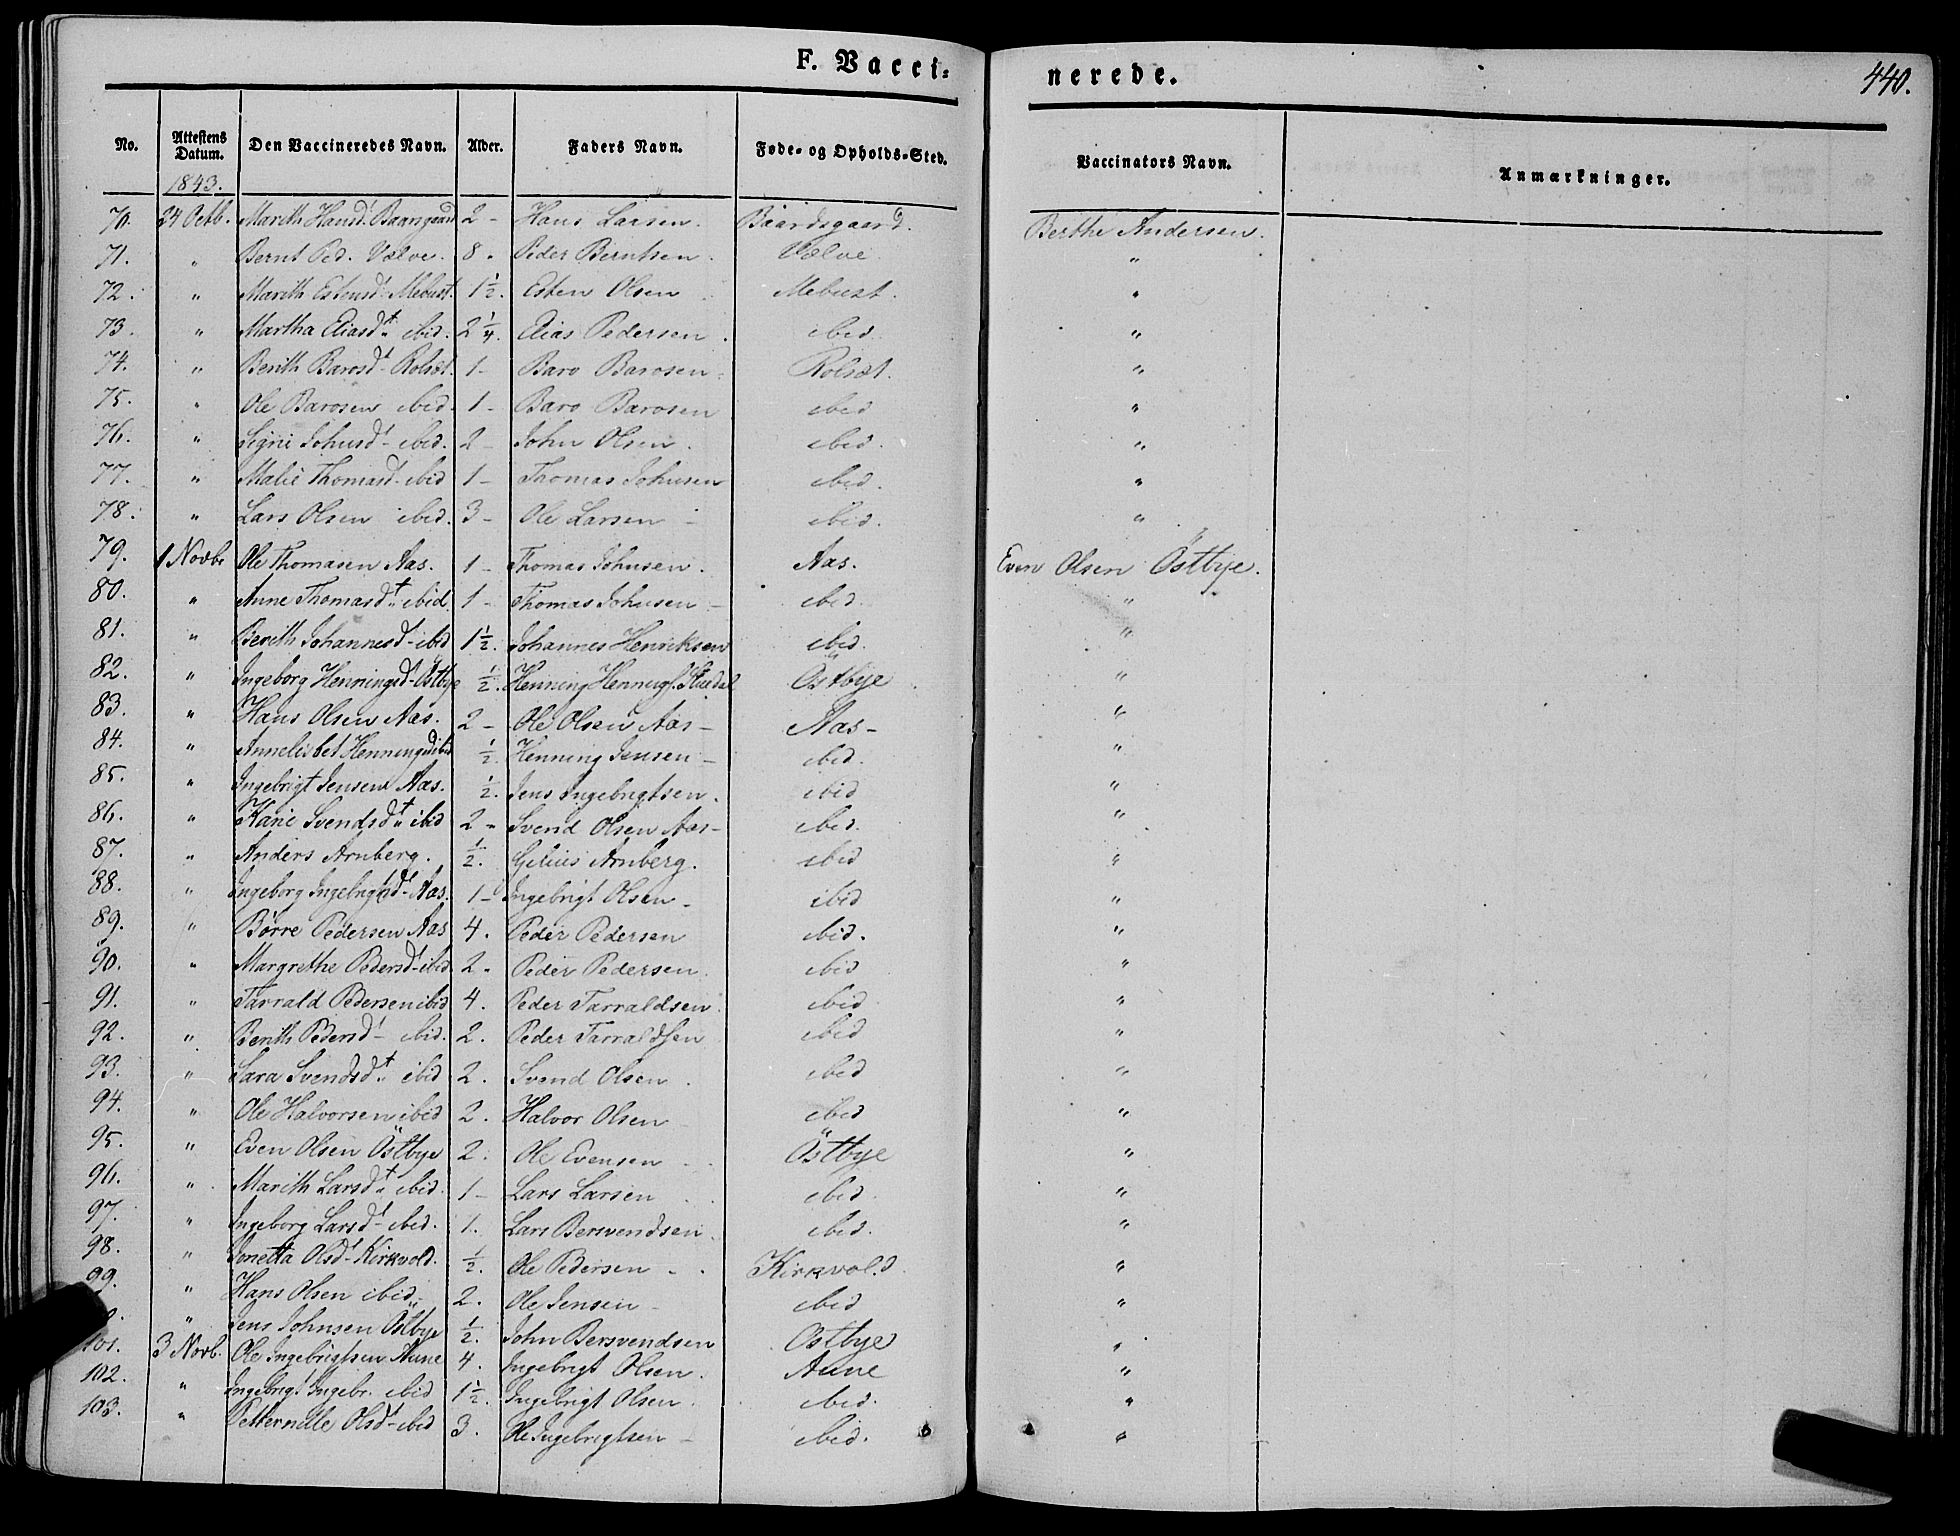 F. Vacci=
nerede.
440.
No. | Attestens Datum. | Den Vaccineredes Navn. | Alder. | Faders Navn. | Føde- og Opholds-Sted. | Vaccinators Navn. | Anmærkninger.
1843.
70. 24 Octb. Marith Hansd. Baarsgaard 2 - Hans Larsen. Baardsgaard. Berthe Andersen.
71. " Bernt Ped. Vælve. 8. Peder Berntsen. Vælve "
72. " Marith Estensdt Mebust. 1½. Esten Olsen. Mebust. "
73. " Martha Eliasdt ibid. 2¼. Elias Pedersen. ibid "
74. " Berith Barosdt Rolset. 1 - Baro Barosen. Rolset. "
75. " Ole Barosen ibid. 1 - Baro Barosen ibid "
76. " Signe Johnsdt ibid. 2 - John Olsen. ibid. "
77. " Malie Thomasdt ibid 1 - Thomas Johnsen ibid. "
78. " Lars Olsen ibid. 3 - Ole Larsen - ibid. "
79. 1 Novbr Ole Thomasen Aas. 1 - Thomas Johnsen. Aas. Even Olsen Östbye.
80. " Anne Thomasdt ibid. 1 - Thomas Johnsen - ibid. "
81. " Berith Johannesdt ibid 1½. Johannes Henriksen ibid. "
82. " Ingeborg Henningsdt Östbye ½. Henning Hennings. Stuedal Östbye. "
83. " Hans Olsen Aas. 2 - Ole Olsen Aas - Aas - "
84. " Annelisbet Henningsd ibid ½. Henning Jensen - ibid. "
85. " Ingebrigt Jensen Aas. ½. Jens Ingebrigtsen. ibid "
86. " Karie Svendsdt ibid 2 - Svend Olsen Aas - ibid. "
87. " Anders Arnberg. ½. Arnberg. ibid "
88. " Ingeborg Ingebrigtsdt Aas. 1 - Ingebrigt Olsen - ibid "
89. " Börre Pedersen Aas 4. Peder Pedersen ibid. "
90. " Margrethe Pedersdt ibid. 2. Peder Pedersen. ibid "
91. " Tarrald Pedersen ibid 4. Peder Tarraldsen. ibid "
92. " Berith Pedersdt ibid. 2. Peder Tarraldsen ibid "
93. " Sara Svendsdt ibid 2. Svend Olsen. ibid "
94. " Ole Halvorsen ibid 2. Halvor Olsen - ibid "
95. " Even Olsen Östbye 2. Ole Evensen - Östbye "
96. " Marith Larsdt ibid. 1 - Lars Larsen ibid. "
97. " Ingeborg Larsdt ibid. 1. Lars Bersvendsen. ibid. "
98. " Jonetta Olsdt Kirkvold. ½. Ole Pedersen - Kirkvold. "
99. " Hans Olsen ibid - 2. Ole Jensen - ibid "
" Jens Johnsen Östbye ½. John Bersvendsen Östbye "
101. 3 Novb. Ole Ingebrigtsen Aune 4. Ingebrigt Olsen. Aune "
102. " Ingebrigt Ingebr. ibid 1½. Ingebrigt Olsen. ibid. "
103. " Petternille Olsdt ibid 3. Ole Ingebrigtsen - ibid. "